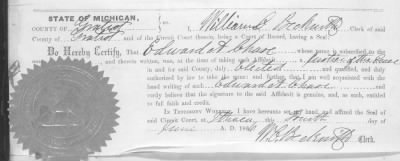 STATE OF MICHIGAN,
COUNTY OF Gratiot I, William E. Beckwith Clerk of said
County of Gratiot and of the Circuit Court thereof, being a Court of Record, having a Seal,
Do Hereby Certify, That Edward H. Chase whose name is subscribed to the
and therein written, was, at the time of taking such Affidavit a Justice of the Peace
in and for said County, duly elected and qualified, and duly
authorized by law to take the same: and further, that I am well acquainted with the
hand writing of such Edward H. Chase and
verily believe that the signature to the said Affidavit is genuine, and, as such, entitled
to full faith and credit.
IN TESTIMONY WHEREOF, I have hereunto set my hand, and affixed the Seal of
said Circuit Court, at Ithaca this
June A. D. 188
W. E. Beckwith Clerk.